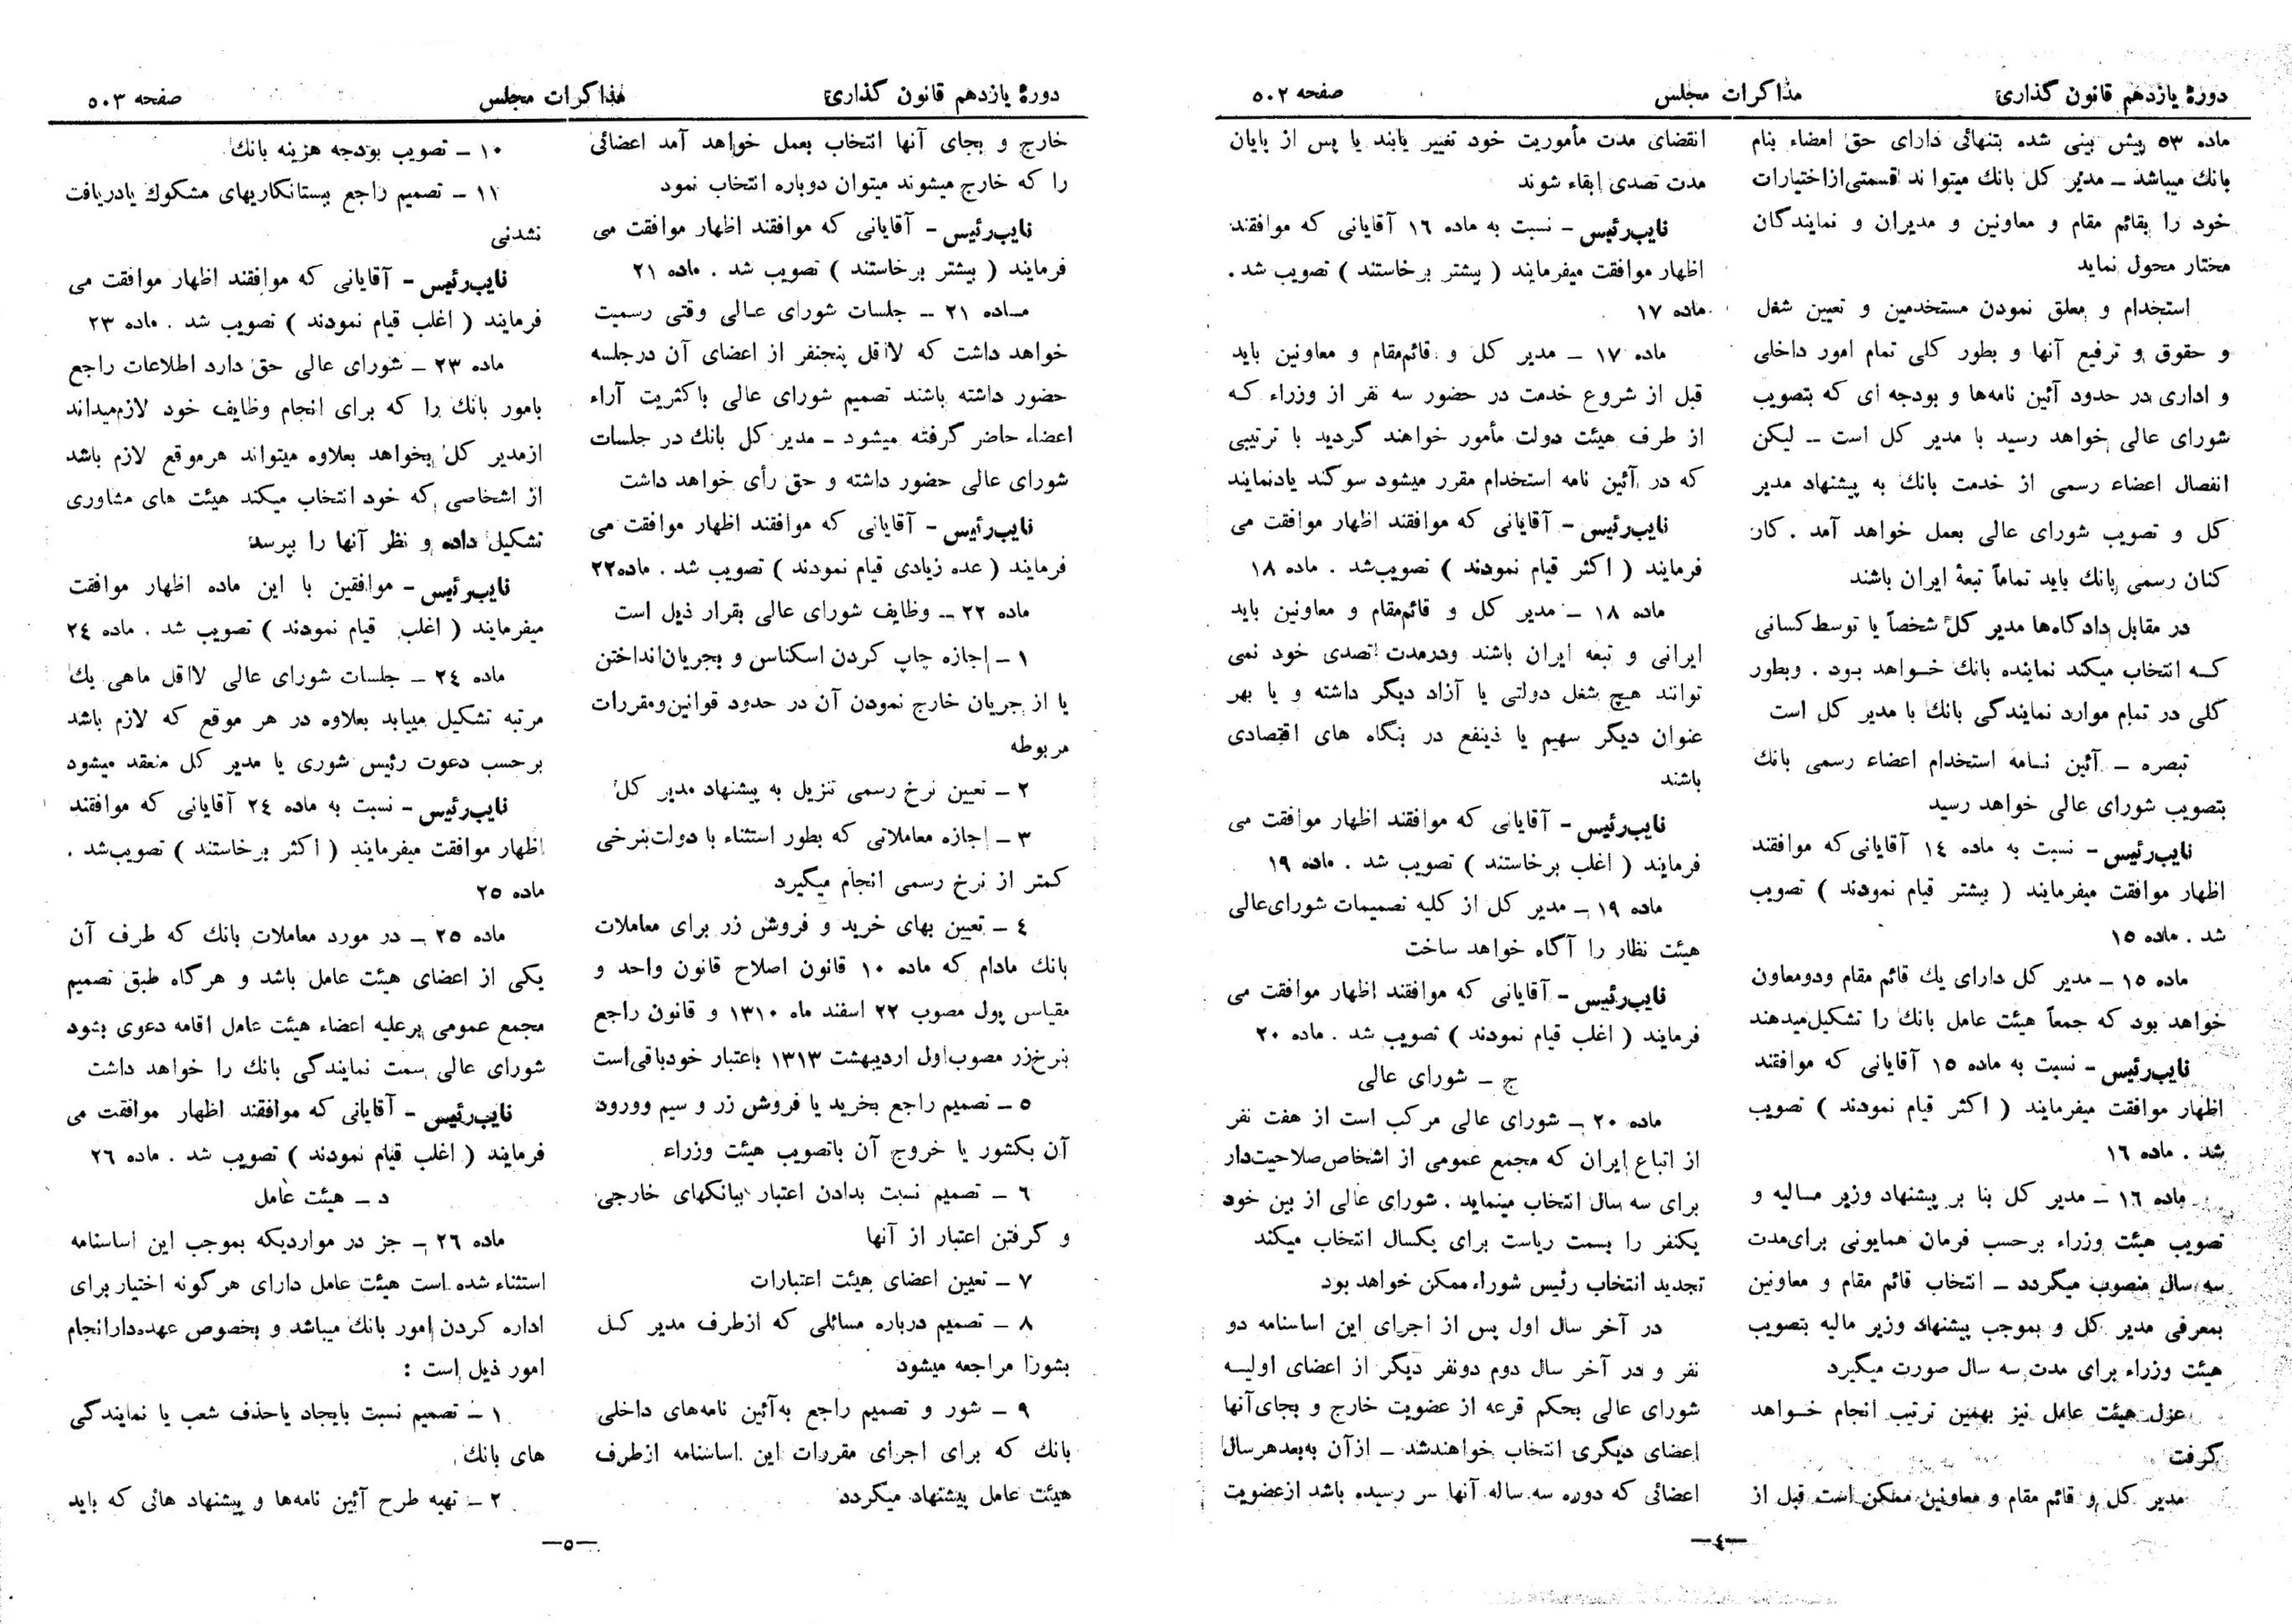 دورهٔ یازدهم قانون گذاری
مذاکرات مجلس
صفحه ۵۰۲
ماده ۵۳ پیش بینی شده بتنهائی دارای حق امضاء بنام
بانك میباشد ــ مدیر کل بانك میتواند قسمتی از اختیارات
خود را بقائم مقام و معاونین و مدیران و نمایندگان
مختار محول نماید
استخدام و معلق نمودن مستخدمین و تعیین شغل
و حقوق و ترفیع آنها و بطور کلی تمام امور داخلی
و اداری در حدود آئین نامه‌ها و بودجه ای که بتصویب
شورای عالی خواهد رسید با مدیر کل است ــ لیکن
انفصال اعضاء رسمی از خدمت بانك به پیشنهاد مدیر
کل و تصویب شورای عالی بعمل خواهد آمد . کار
کنان رسمی بانك باید تماماً تبعهٔ ایران باشند
در مقابل دادگاه‌ها مدیر کل شخصاً یا توسط کسانی
کــه انتخاب میکند نماینده بانك خــواهد بـود . وبطور
کلی در تمام موارد نمایندگی بانك با مدیر کل است
تبصره ــ آئین نــامه استخدام اعضاء رسمی بانك
بتصویب شورای عالی خواهد رسید
نایب‌رئیس ــ نسبت به ماده ۱۴ آقایانی که موافقند
اظهار موافقت میفرمایند ( بیشتر قیام نمودند ) تصویب
شد . ماده ۱۵
ماده ۱۵ ــ مدیر کل دارای یك قائم مقام ودومعاون
خواهد بود که جمعاً هیئت عامل بانك را تشکیل میدهند
نایب‌رئیس ــ نسبت به ماده ۱۵ آقایانی که موافقند
اظهار موافقت میفرمایند ( اکثر قیام نمودند ) تصویب
شد . ماده ۱۶
ماده ۱۶ ــ مدیر کل بنا بر پیشنهاد وزیر مـالیه و
تصویب هیئت وزراء برحسب فرمان همایونی برای مدت
سه سال منصوب میگردد ــ انتخاب قائم مقام و معاونین
بمعرفی مدیر کل و بموجب پیشنهاد وزیر مالیه بتصویب
هیئت وزراء برای مدت سه سال صورت میگیرد
عزل هیئت عامل نیز بهمین ترتیب انجام خــواهد
گرفت
مدیر کل و قائم مقام و معاونین ممکن است قبل از
انقضای مدت مأموریت خود تغییر یابند یا پس از بایان
مدت تصدی ابقاء شوند
نایب‌رئیس ــ نسبت به ماده ۱۶ آقایانی که موافقند
اظهار موافقت میفرمایند ( بیشتر برخاستند ) تصویب شد .
ماده ۱۷
ماده ۱۷ ــ مدیر کل و قائم‌مقام و معاونین باید
قبل از شروع خدمت در حضور سه نفر از وزراء کـه
از طرف هیئت دولت مأمور خواهند گردید با ترتیبی
که در آئین نامه استخدام مقرر میشود سوگند یادنمایند
نایب‌رئیس ــ آقایانی که موافقند اظهار موافقت می
فرمایند ( اکثر قیام نمودند ) تصویب‌شد . ماده ۱۸
ماده ۱۸ ــ مدیر کل و قائم‌مقام و معاونین باید
ایرانی و تبعه ایران باشند ودرمدت تصدی خود نمی
توانند هیچ شغل دولتی یا آزاد دیگر داشته و یا بهر
عنوان دیگر سهیم یا ذینفع در بنگاه های اقتصادی
باشند
نایب‌رئیس ــ آقایانی که موافقند اظهار موافقت می
فرمایند ( اغلب برخاستند ) تصویب شد . ماده ۱۹
ماده ۱۹ ــ مدیر کل از کلیه تصمیمات شورای‌عالی
هیئت نظار را آگاه خواهد ساخت
نایب‌رئیس ــ آقایانی که موافقند اظهار موافقت می
فرمایند ( اغلب قیام نمودند ) تصویب شد . ماده ۲۰
ج ــ شورای عالی
ماده ۲۰ ــ شورای عالی مرکب است از هفت نفر
از اتباع ایران که مجمع عمومی از اشخاص صلاحیت‌دار
برای سه سال انتخاب مینماید . شورای عالی از بین خود
یکنفر را بسمت ریاست برای یکسال انتخاب میکند
تجدید انتخاب رئیس شوراء ممکن خواهد بود
در آخر سال اول پس از اجرای این اساسنامه دو
نفر و در آخر سال دوم دونفر دیگر از اعضای اولیــه
شورای عالی بحکم قرعه از عضویت خارج و بجای آنها
اعضای دیگری انتخاب خواهندشد ــ ازآن به‌بعدهرسال
اعضائی که دوره سه ساله آنها سر رسیده باشد ازعضویت
ــ۴ــ
دورهٔ یازدهم قانون گذاری
مذاکرات مجلس
صفحه ۵۰۳
خارج و بجای آنها انتخاب بعمل خواهد آمد اعضائی
را که خارج میشوند میتوان دوباره انتخاب نمود
نایب‌رئیس ــ آقایانی که موافقند اظهار موافقت می
فرمایند ( بیشتر برخاستند ) تصویب شد . ماده ۲۱
مــاده ۲۱ ــ جلسات شورای عـالی وقتی رسمیت
خواهد داشت که لااقل پنجنفر از اعضای آن درجلسه
حضور داشته باشند تصمیم شورای عالی باکثریت آراء
اعضاء حاضر گرفته میشود ــ مدیر کل بانك در جلسات
شورای عالی حضور داشته و حق رأی خواهد داشت
نایب‌رئیس ــ آقایانی که موافقند اظهار موافقت می
فرمایند ( عده زیادی قیام نمودند ) تصویب شد . ماده۲۲
ماده ۲۲ ــ وظایف شورای عالی بقرار ذیل است
۱ ــ اجازه چاپ کردن اسکناس و بجریان‌انداختن
یا از جریان خارج نمودن آن در حدود قوانین‌ومقررات
مربوطه
۲ ــ تعیین نرخ رسمی تنزیل به پیشنهاد مدیر کل
۳ ــ اجازه معاملاتی که بطور استثناء با دولت‌بنرخی
کمتر از نرخ رسمی انجام میگیرد
۴ ــ تعیین بهای خرید و فروش زر برای معاملات
بانك مادام که ماده ۱۰ قانون اصلاح قانون واحد و
مقیاس پول مصوب ۲۲ اسفند ماه ۱۳۱۰ و قانون راجع
بنرخ‌زر مصوب‌اول اردیبهشت ۱۳۱۳ باعتبار خودباقی‌است
۵ ــ تصمیم راجع بخرید یا فروش زر و سیم وورود
آن بکشور یا خروج آن باتصویب هیئت وزراء
۶ ــ تصمیم نسبت بدادن اعتبار ببانکهای خارجی
و گرفتن اعتبار از آنها
۷ ــ تعیین اعضای هیئت اعتبارات
۸ ــ تصمیم درباره مسائلی که ازطرف مدیر کــل
بشورا مراجعه میشود
۹ ــ شور و تصمیم راجع به‌آئین نامه‌های داخلی
بانك که برای اجرای مقررات این اساسنامه ازطرف
هیئت عامل پیشنهاد میگردد
۱۰ ــ تصویب بودجه هزینه بانك
۱۱ ــ تصمیم راجع ببستانکاریهای مشکوك یادریافت
نشدنی
نایب‌رئیس ــ آقایانی که موافقند اظهار موافقت می
فرمایند ( اغلب قیام نمودند ) تصویب شد . ماده ۲۳
ماده ۲۳ ــ شورای عالی حق دارد اطلاعات راجع
بامور بانك را که برای انجام وظایف خود لازم‌میداند
ازمدیر کل بخواهد بعلاوه میتواند هرموقع لازم باشد
از اشخاصی که خود انتخاب میکند هیئت های مشاوری
تشکیل داده و نظر آنها را بپرسد
نایب‌رئیس ــ موافقین با این ماده اظهار موافقت
میفرمایند ( اغلب قیام نمودند ) تصویب شد . ماده ۲۴
ماده ۲۴ ــ جلسات شورای عالی لااقل ماهی یك
مرتبه تشکیل مییابد بعلاوه در هر موقع که لازم باشد
برحسب دعوت رئیس شوری یا مدیر کل منعقد میشود
نایب‌رئیس ــ نسبت به ماده ۲۴ آقایانی که موافقند
اظهار موافقت میفرمایند ( اکثر برخاستند ) تصویب‌شد .
ماده ۲۵
ماده ۲۵ ــ در مورد معاملات بانك که طرف آن
یکی از اعضای هیئت عامل باشد و هرگاه طبق تصمیم
مجمع عمومی برعلیه اعضاء هیئت عامل اقامه دعوی بشود
شورای عالی سمت نمایندگی بانك را خواهد داشت
نایب‌رئیس ــ آقایانی که موافقند اظهار موافقت می
فرمایند ( اغلب قیام نمودند ) تصویب شد . ماده ۲۶
د ــ هیئت عامل
ماده ۲۶ ــ جز در مواردیکه بموجب این اساسنامه
استثناء شده است هیئت عامل دارای هرگونه اختیار برای
اداره کردن امور بانك میباشد و بخصوص عهده‌دارانجام
امور ذیل است :
۱ ــ تصمیم نسبت بایجاد یاحذف شعب یا نمایندگی
های بانك
۲ ــ تهیه طرح آئین نامه‌ها و پیشنهاد هائی که باید
ــ۵ــ